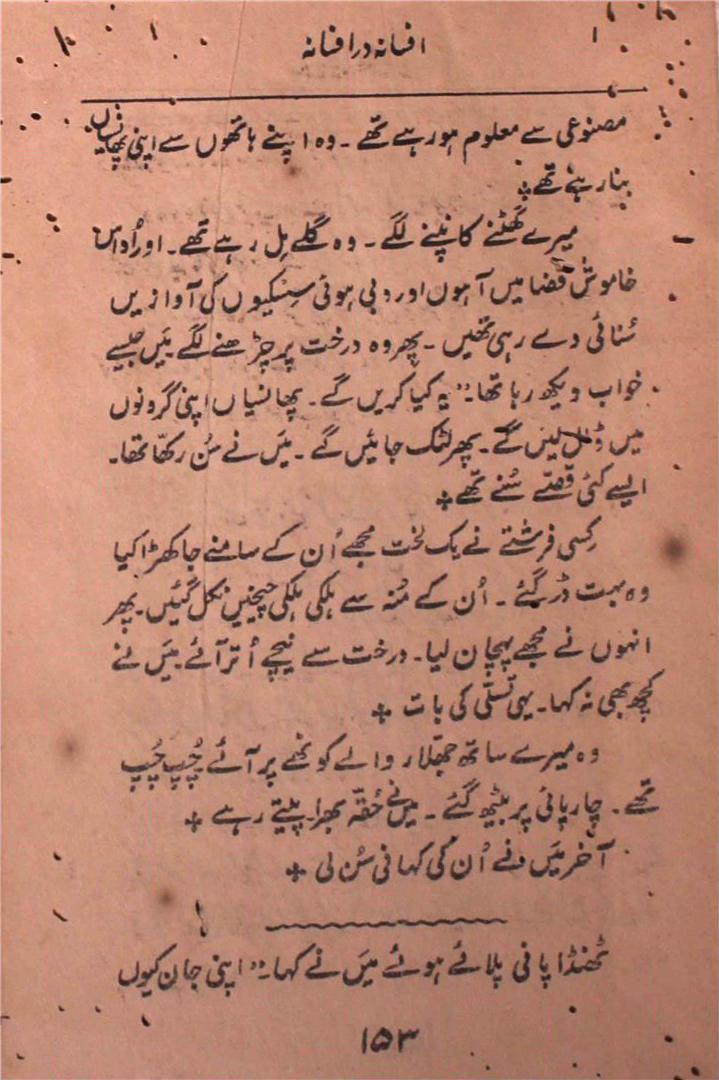 افسانہ در افسانہ
مصنوعی سے معلوم ہو رہے تھے۔ وہ اپنے ہاتھوں سے اپنی پھانسیاں
بنا رہے تھے ÷
میرے گھٹنے کانپنے لگے۔ وہ گلے مل رہے تھے۔ اور اُداس
خاموش فضا میں آہوں اور دبی ہوئی سِسکیوں کی آوازیں
سُنائی دے رہی تھیں۔ پھر وہ درخت پر چڑھنے لگے مَیں جیسے
خواب دیکھ رہا تھا۔" یہ کیا کریں گے۔ پھانسیاں اپنی گردنوں
میں ڈال لیں گے۔ پھر لٹک جائیں گے۔ مَیں نے سُن رکھّا تھا۔
ایسے کئی قصّے سُنے تھے ÷
کِسی فرشتے نے یک لخت مجھے اُن کے سامنے جا کھڑا کیا
وہ بہت ڈر گئے۔ اُن کے مُنہ سے ہلکی ہلکی چیخیں نکل گئیں۔ پھر
انہوں نے مجھے پہچان لیا۔ درخت سے نیچے اُتر آئے مَیں نے
کُچھ بھی نہ کہا۔ یہی تسلّی کی بات ÷
وہ میرے ساتھ جھلار والے کوٹھے پر آئے چُپ چُپ
تھے۔ چارپائی پر بیٹھ گئے۔ مَیں نے حُقّہ بھرا۔ پیتے رہے ÷
آخر مَیں نے اُن کی کہانی سُن لی ÷
ٹھنڈا پانی پلاتے ہوئے مَیں نے کہا۔" اپنی جان کیوں
۱۵۳